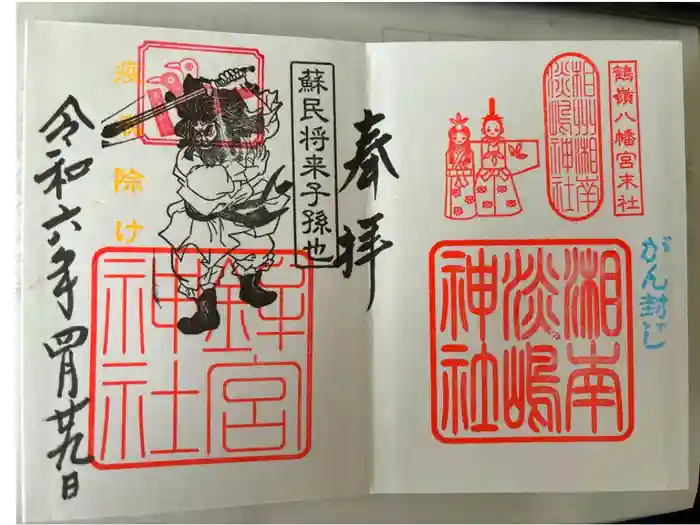 鶴嶺八幡宮末社
相州湘南
淡嶋神社
がん封じ
湘南
淡嶋
神社
奉拝
蘇民将来子孫也
鉾宮
神社
除け
令和六年四月廿九日